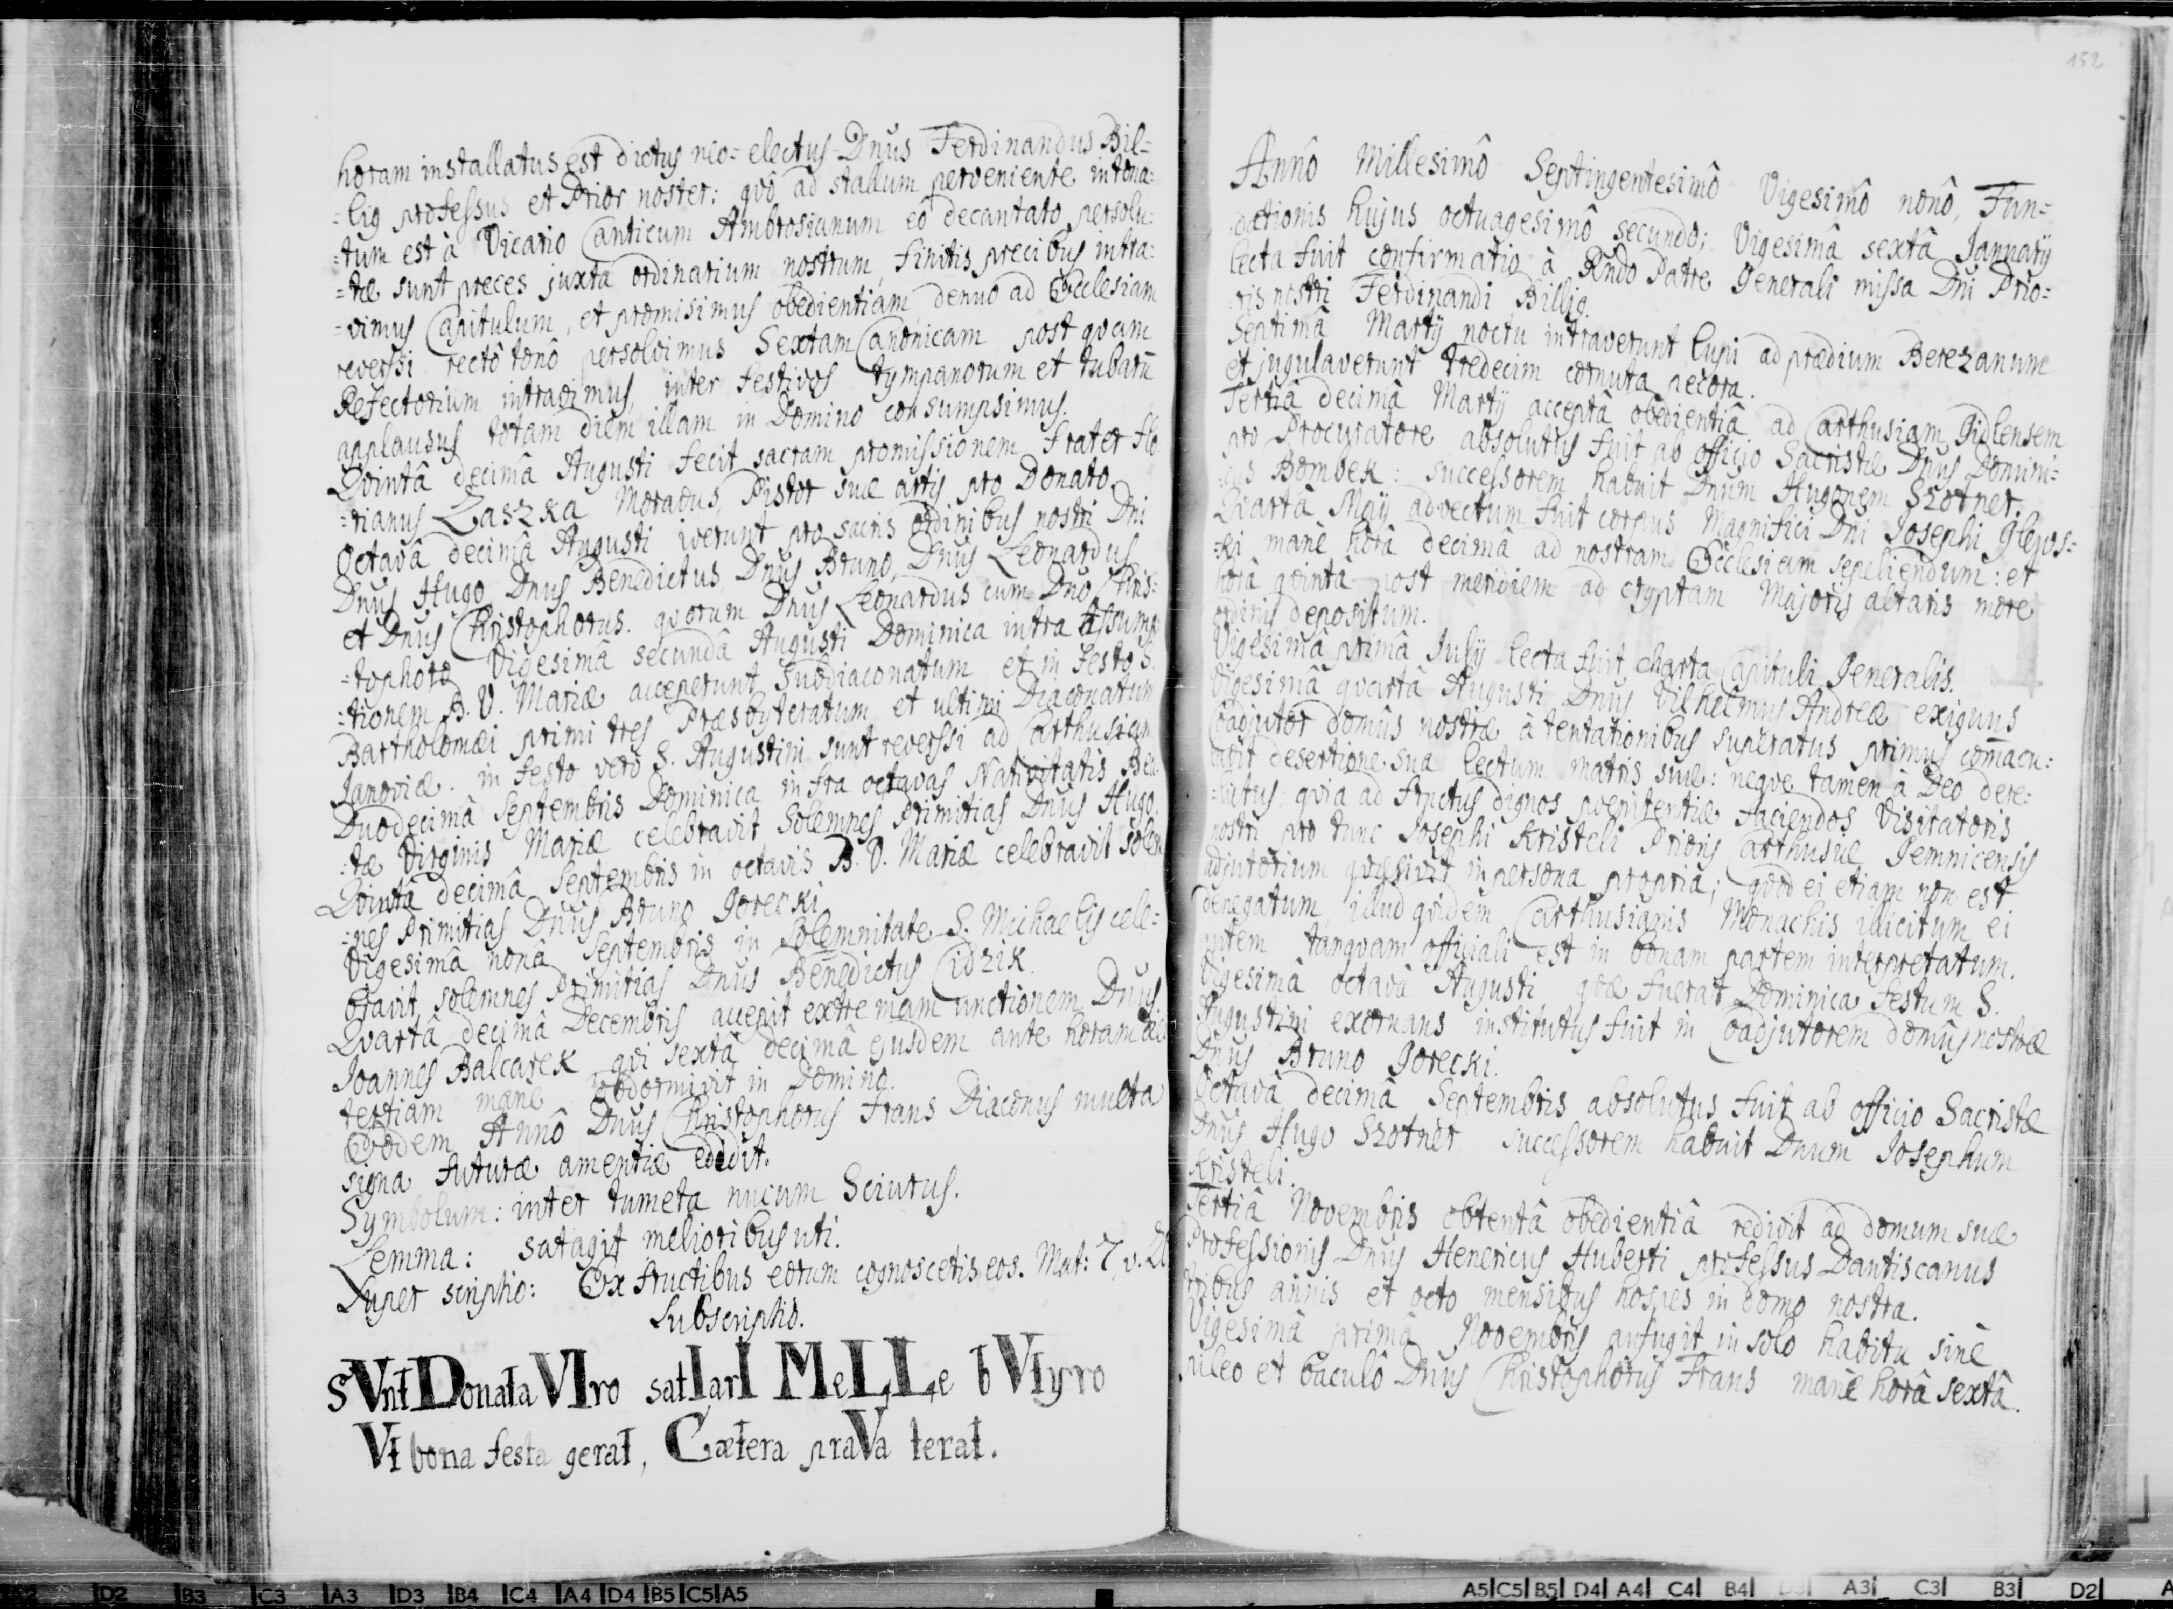 horam installatus est dictus neo=electus Dnus Ferdinandus Bil=
=lig professus et Prior noster: qvô ad stallum perveniente intona=
=tum est à Vicario Canticum Ambrosianum eô decantato persolu=
=tæ sunt preces juxta ordinarium nostrum, finitis precibus intra=
=vimus Capitulum, et promisimus obedientiam denuo ad Ecclesiam
reverssi rectô tonô persolvimus Sextam Canonicam post qvam
Refectorium intravimus, inter festivos tympanorum et tubarū
applausus totam diem illam in Domino consumpsimus.
Qvintâ decimâ Augusti fecit sacram promissionem Frater Flo
=rianus Laszka Moravus, Pistor suæ artis pro Donato.
Octavâ decimâ Augusti iverunt pro sacris Ordinibus nostri Dni
Dnus Hugo, Dnus Benedictus, Dnus Bruno, Dnus Leonardus
et Dnus Christophorus. qvorum Dnus Leonardus cum Dno Chris=
=tophoro Vigesimâ secundâ Augusti Dominica intra Assump
=tionem B. V. Mariæ acceperunt Subdiaconatum et in Festo S.
Bartholomæi primi tres Præsbyteratum et ultimi Diaconatum
Janoviæ. in festo vero S. Augustini sunt reverssi ad Carthusiam
Duodecimâ Septembris Dominica infra octavas Nativitatis Bea=
=tæ Virginis Mariæ celebravit Solemnes Primitias Dnus Hugo.
Qvintâ decimâ Septembris in octavis B. V. Mariæ celebravit Solem
=nes Primitias Dnus Bruno Gorecki
Vigesimâ nonâ Septembris in Solemnitate S. Michaelis cele=
bravit solemnes Primitias Dnus Benedictus Cidzik.
Qvartâ decimâ Decembris accepit extremam unctionem Dnus
Joannes Balcarek, qvi sextâ decimâ ejusdem ante horam
tertiam mane obdormivit in Domino.
Eodem Annô Dnus Christophorus Frans Diaconus multa
signa futuræ amentiæ edidit.
Symbolum: inter tumeta nucum Sciurus.
Lemma: satagit melioribus uti.
Super scriptio: Ex fructibus eorum cognoscetis eos. Mat: 7, v. 20
Subscriptio.
sVnt Donata VIro satIarI MeLLe bVtyro
Vt bona festa gerat, Cætera praVa terat.
152
Annô Millesimô Septingentesimô Vigesimô nonô, Fun=
dationis hujus octuagesimô secundo; Vigesimâ sextâ Januarij
lecta fuit confirmatio à Rndo Patre Generali missa Dni Prio=
ris nostri Ferdinandi Billig.
Septimâ Martij noctu intraverunt lupi ad prædium Berezanum
et jugulaverunt tredecim cornuta pecora.
Tertiâ decimâ Martij acceptâ obedientiâ ad Carthusiam Gidlensem
pro Procuratore absolutus fuit ab officio Sacristæ Dnus Domini=
Bombek: successorem habuit Dnum Hugonem Szotner.
Qvartâ Maij advectum fuit corpus Magnifici Dni Josephi
mane horâ decimâ ad nostram Ecclesiam sepeliendum: et
horâ qvintâ post meridiem ad cryptam Majoris altaris more
ordinis depositum.
Vigesimâ primâ Julij lecta fuit charta Capituli Generalis.
Vigesimâ qvartâ Augusti Dnus Vilhelmus Andreæ exiguus
Coadjutor domûs nostræ à tentationibus superatus primus com̄acu=
lavit desertione sua lectum matris suæ: neqve tamen à Deo dere=
lictus, qvia ad fructus dignos poenitentiæ faciendos Visitatoris
nostri pro tunc Josephi Kristeli Prioris Carthusiæ Gemnicensis
adjutorium qvæsivit in persona propria; qvod ei etiam non est
denegatum, illud qvidem Carthusianis Monachis illicitum ei
autem tanqvam officiali est in bonam partem interpretatum.
Vigesimâ octavâ Augusti, qvæ fuerat Dominica Festum S.
Augustini exornans institutus fuit in Coadjutorem domûs nostræ
Dnus Bruno Gorecki.
Octavâ decimâ Septembris absolutus fuit ab officio Sacristæ
Dnus Hugo Szotner successorem habuit Dnum Josephum
Kristeli.
Tertiâ Novembris obtentâ obedientiâ redivit ad domum suæ
Professionis Dnus Henricus Huberti professus Dantiscanus
tribus annis et octo mensibus hospes in domo nostra.
Vigesimâ primâ Novembris aufugit in solo habitu sinê
pileo et baculô Dnus Christophorus Frans manê horâ sextâ.